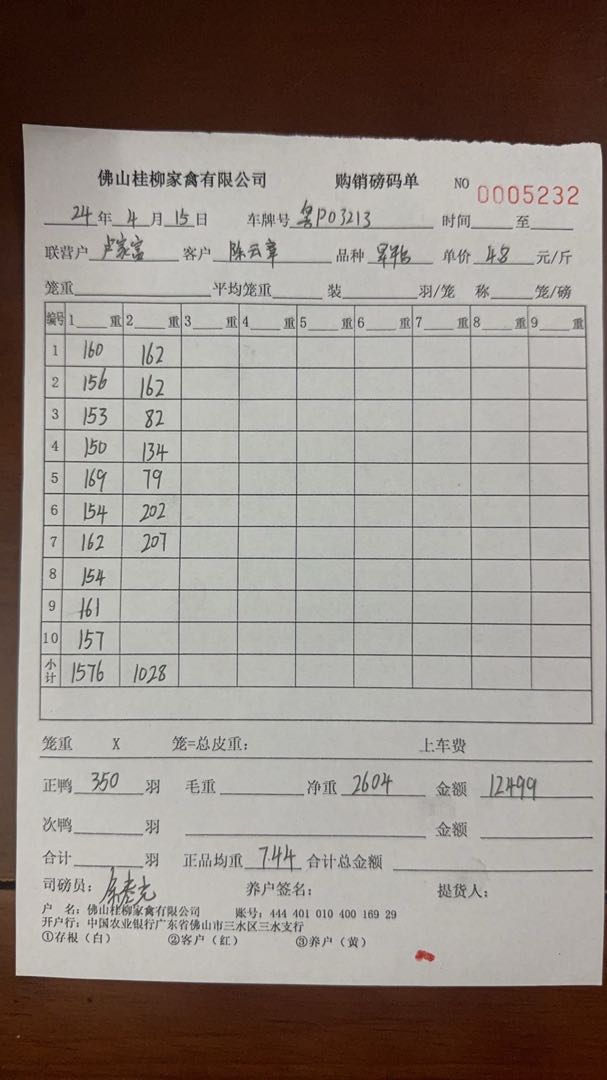 佛山桂柳家禽有限公司 购销磅码单 NO 0005232
24年4月15日 车牌号 粤P03213 时间 至
联营户 卢家富 客户 陈云章 品种 单价 4.8 元/斤
笼重 平均笼重 装 羽/笼 称 笼/磅
编号 1 重 2 重 3 重 4 重 5 重 6 重 7 重 8 重 9 重
1 160 162
2 156 162
3 153 82
4 150 134
5 169 79
6 154 202
7 162 207
8 154
9 161
10 157
小计 1576 1028
笼重 X 笼=总皮重: 上车费
正鸭 350 羽 毛重 净重 2604 金额 12499
次鸭 羽 金额
合计 羽 正品均重 7.44 合计总金额
司磅员: 养户签名: 提货人:
户 名: 佛山桂柳家禽有限公司 账号: 444 401 010 400 169 29
开户行: 中国农业银行广东省佛山市三水区三水支行
①存根(白) ②客户(红) ③养户(黄)